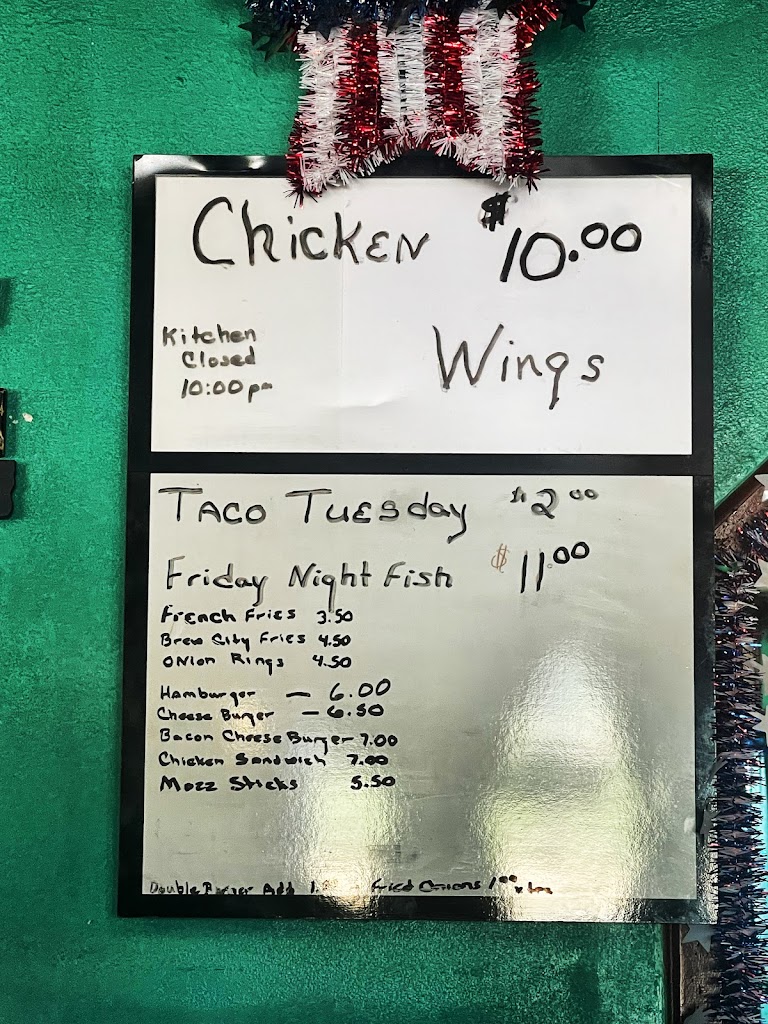 Chicken $10.00
Kitchen
Closed
10:00 pm
Wings
Taco Tuesday $2.00
Friday Night Fish $11.00
French Fries 3.50
Brew City Fries 4.50
Onion Rings 4.50
Hamburger — 6.00
Cheese Burger — 6.50
Bacon Cheese Burger - 7.00
Chicken Sandwich 7.00
Mozz Sticks 5.50
Double Burger Add Fried Onions 1.00